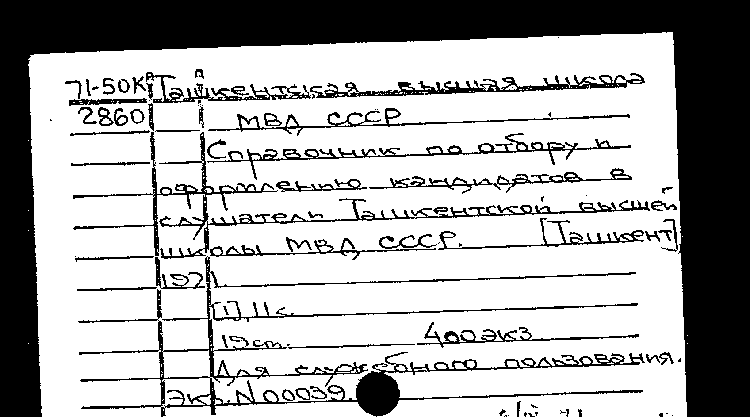 71-50К Ташкентская высшая школа
2860 МВД СССР
Справочник по отбору и
оформлению кандидатов в
слушатели Ташкентской высшей
школы МВД СССР. [Ташкент]
1971.
[1], 11 с.
19 см. 400 экз
Для служебного пользования.
Экз. N 00039.